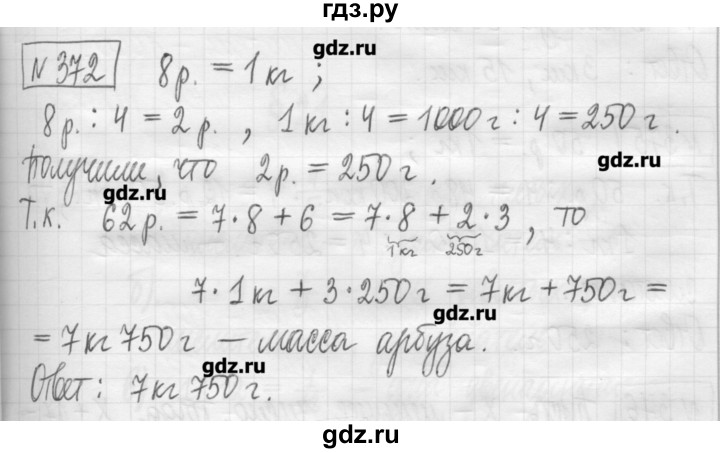 гдз.ру
gdz.ru
N 372 8р. = 1 кг ;
8р. : 4 = 2 р. , 1 кг : 4 = 1000 г : 4 = 250 г .
gdz.ru
Получили, что 2р. = 250 г .
gdz.ru
Т.к. 62 р. = 7·8 + 6 = 7·8 + 2·3 , то
1 кг 250 г
7·1 кг + 3·250 г = 7 кг + 750 г =
gdz.ru
= 7 кг 750 г – масса арбуза.
gdz.ru
Ответ: 7 кг 750 г .
gdz.ru